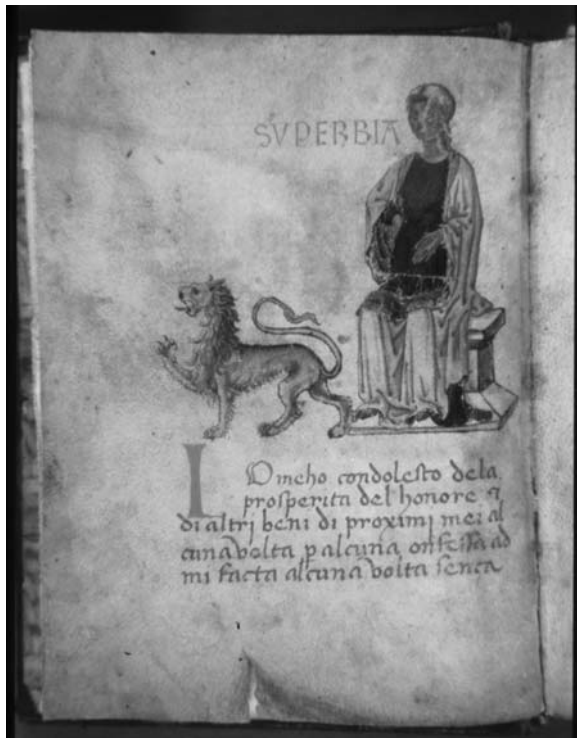 SVPERBIA
IO meho condolesto dela
prosperita del honore ⁊
di altrj beni di proximj mei al
cuna volta p alcuna offessa ad
mi facta alcuna volta senca